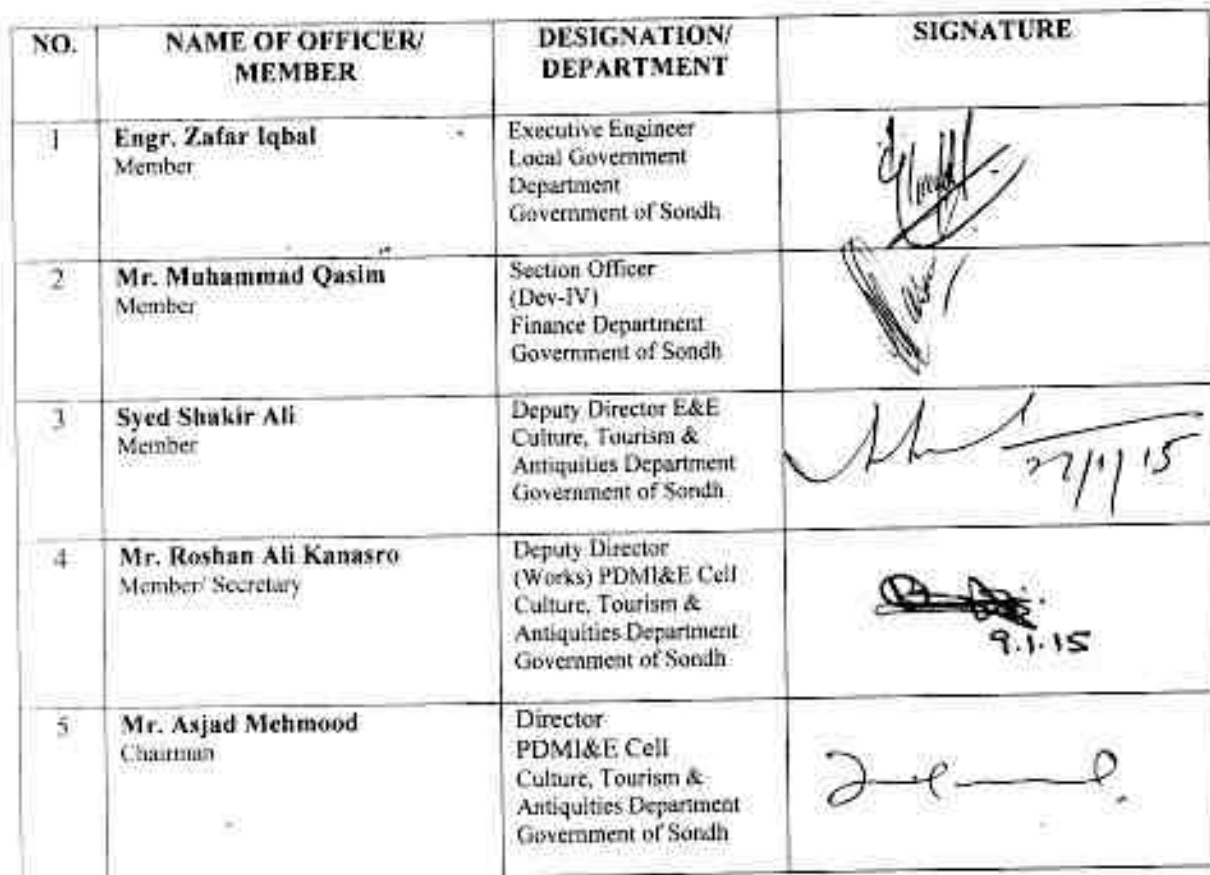 NO.
NAME OF OFFICER/
MEMBER
DESIGNATION/
DEPARTMENT
SIGNATURE
1
Engr. Zafar Iqbal
Member
Executive Engineer
Local Government
Department
Government of Sondh
2
Mr. Muhammad Qasim
Member
Section Officer
(Dev-IV)
Finance Department
Government of Sondh
3
Syed Shakir Ali
Member
Deputy Director E&E
Culture, Tourism &
Antiquities Department
Government of Sondh
27/1/15
4
Mr. Roshan Ali Kanasro
Member/ Secretary
Deputy Director
(Works) PDMI&E Cell
Culture, Tourism &
Antiquities Department
Government of Sondh
9.1.15
5
Mr. Asjad Mehmood
Chairman
Director
PDMI&E Cell
Culture, Tourism &
Antiquities Department
Government of Sondh